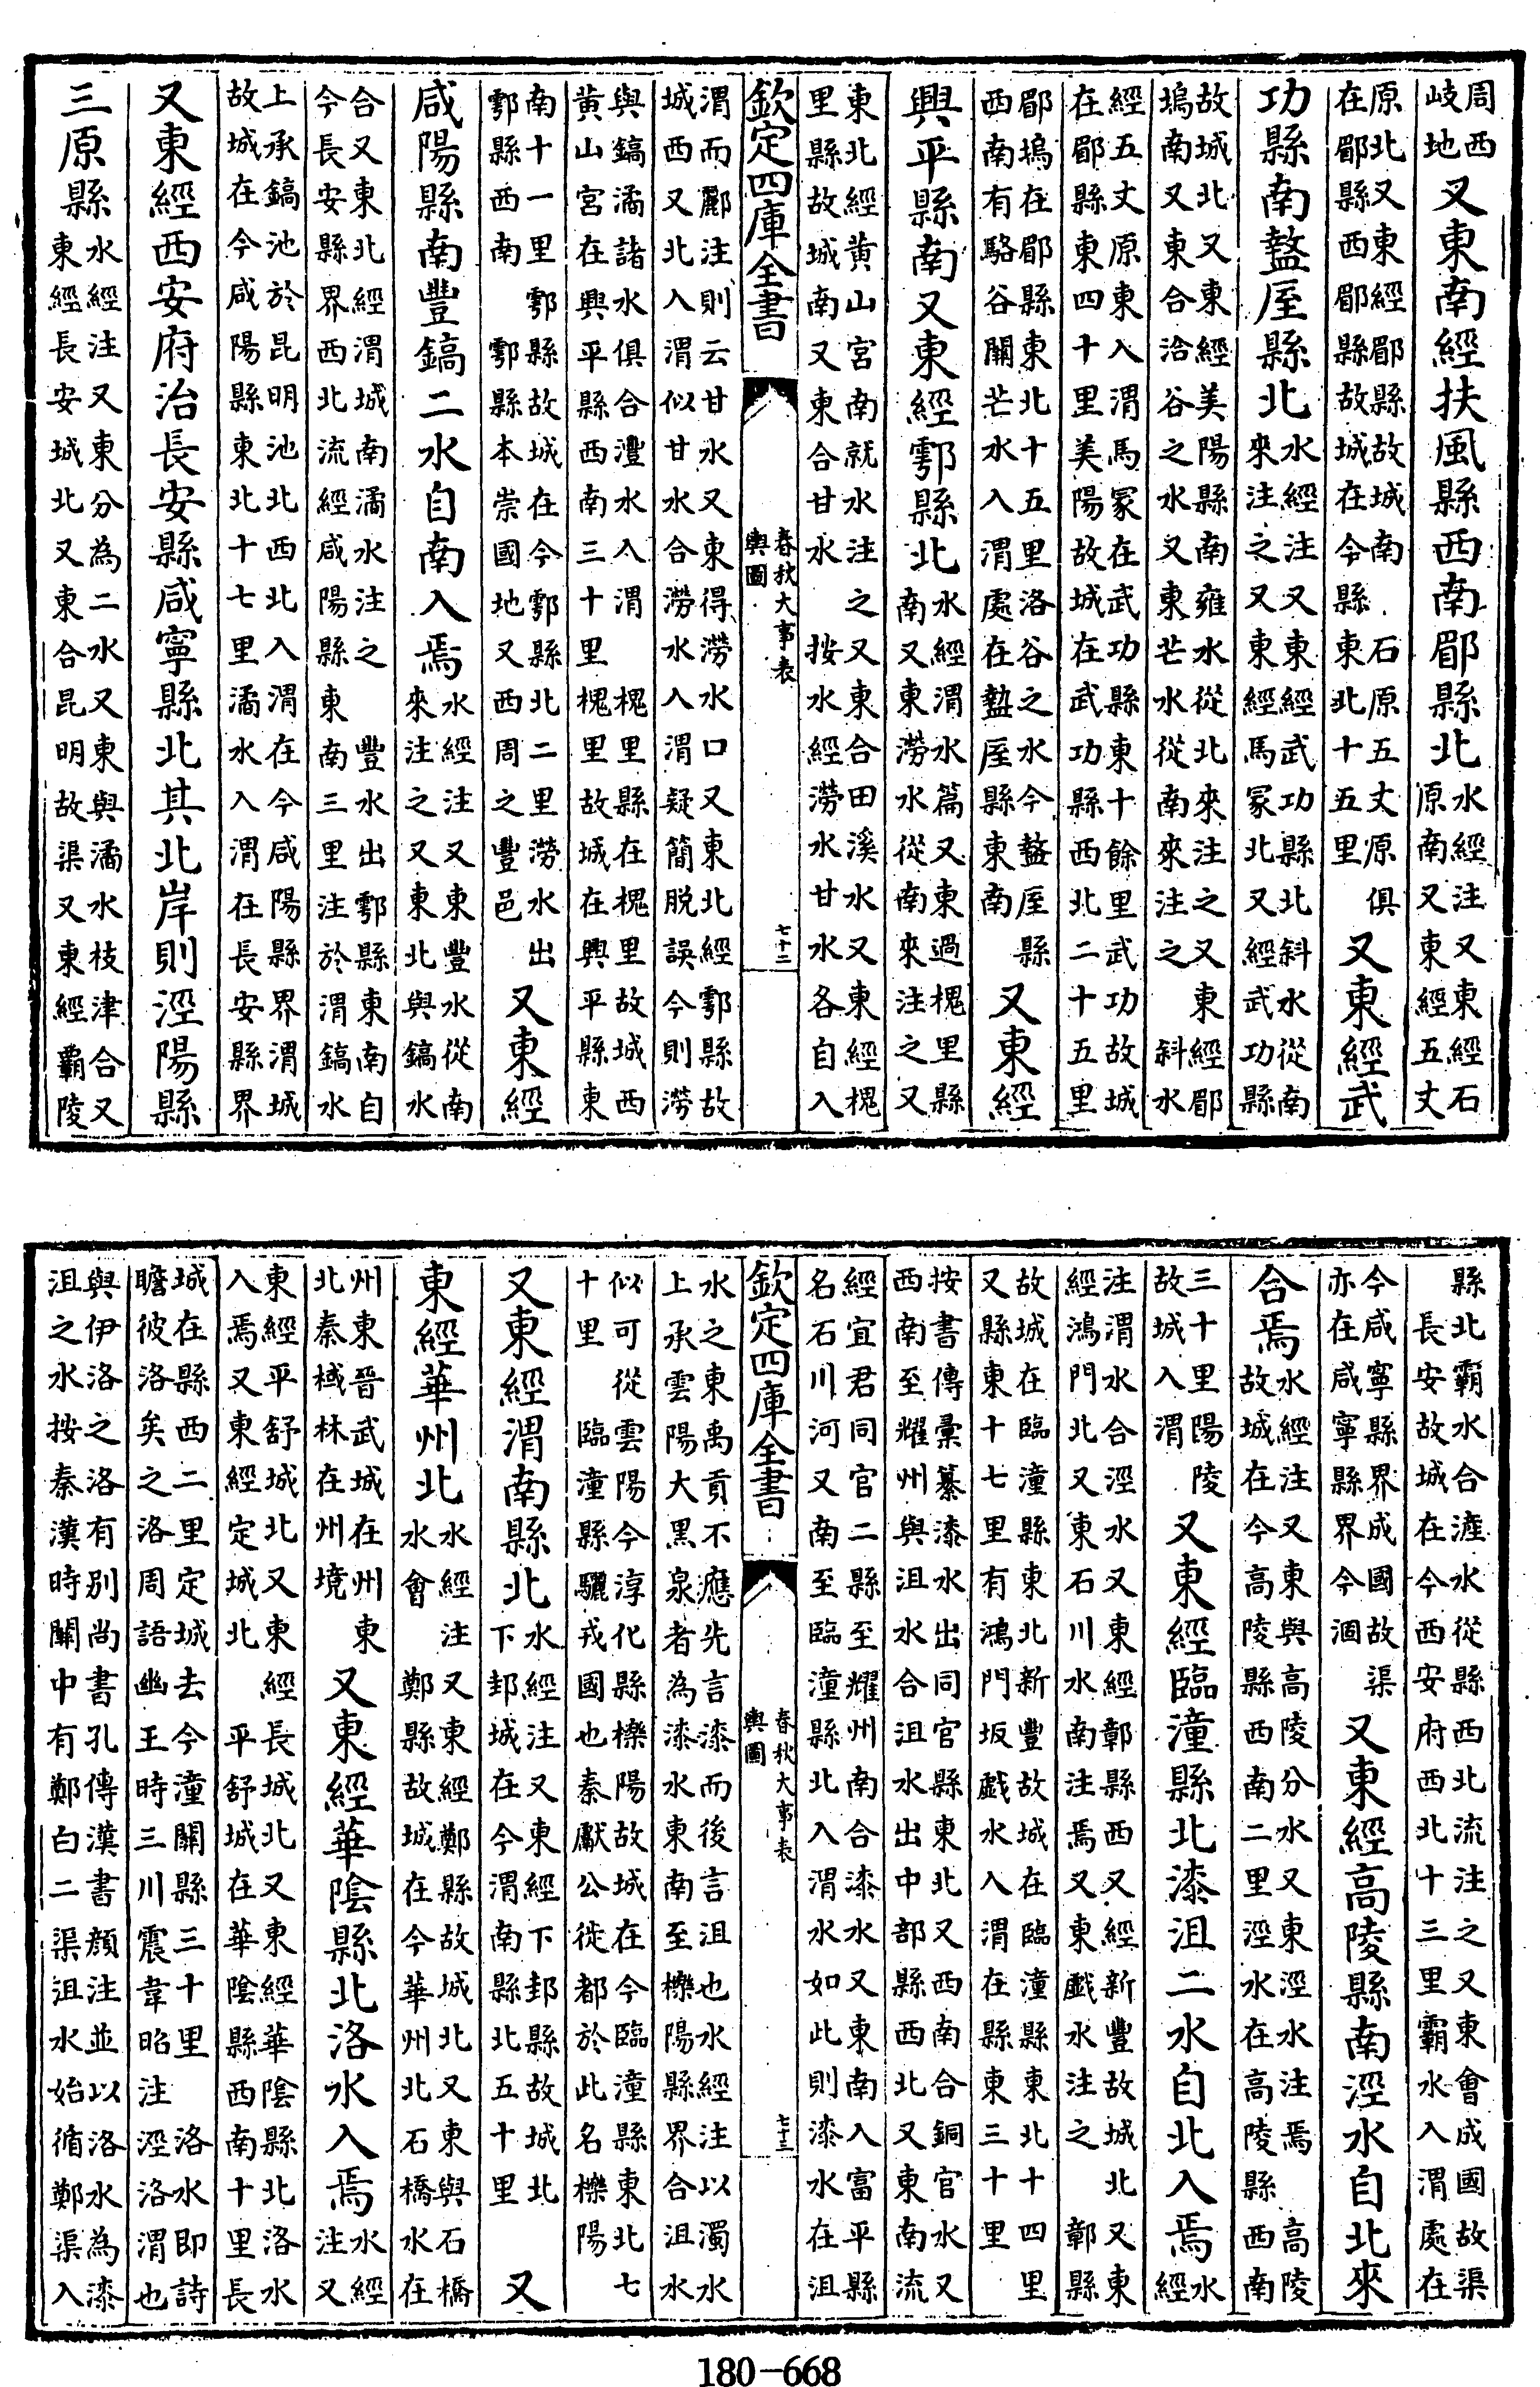 周西岐地又東南經扶風縣西南郿縣北水經注又東經石原南又東經五丈
原北又東經郿縣故城南石原五丈原俱在郿縣西郿縣故城在今縣東北十五里又東經武
功縣南盩厔縣北水經注又東經武功縣北斜水從南來注之又東經馬冢北又經武功縣
故城北又東經美陽縣南雍水從北來注之又東經郿塢南又東合洽谷之水又東芒水從南來注之斜水
經五丈原東入渭馬冢在武功縣東十餘里武功故城在郿縣東四十里美陽故城在武功縣西北二十五里
郿塢在郿縣東北十五里洛谷之水今盩厔縣西南有駱谷關芒水入渭處在盩厔縣東南又東經
興平縣南又東經鄠縣北水經渭水篇又東過槐里縣南又東澇水從南來注之又
東北經黄山宮南就水注之又東合田溪水又東經槐里縣故城南又東合甘水按水經澇水甘水各自入
欽定四庫全書 春秋大事表 輿圖 七十二
渭而酈注則云甘水又東得澇水口又東北經鄠縣故城西又北入渭似甘水合澇水入渭疑簡脱誤今則澇
與鎬潏諸水俱合灃水入渭槐里縣在槐里故城西黄山宮在興平縣西南三十里槐里故城在興平縣東
南十一里鄠縣故城在今鄠縣北二里澇水出鄠縣西南鄠縣本崇國地又西周之豐邑又東經
咸陽縣南豐鎬二水自南入焉水經注又東豐水從南來注之又東北與鎬水
合又東北經渭城南潏水注之豐水出鄠縣東南自今長安縣界西北流經咸陽縣東南三里注於渭鎬水
上承鎬池於昆明池北西北入渭在今咸陽縣界渭城故城在今咸陽縣東北十七里潏水入渭在長安縣界
又東經西安府治長安縣咸寧縣北其北岸則涇陽縣
三原縣水經注又東分為二水又東與潏水枝津合又東經長安城北又東合昆明故渠又東經霸陵
縣北霸水合滻水從縣西北流注之又東會成國故渠長安故城在今西安府西北十三里霸水入渭處在
今咸寧縣界成國故渠亦在咸寧縣界今涸又東經高陵縣南涇水自北來
合焉水經注又東與高陵分水又東涇水注焉高陵故城在今高陵縣西南二里涇水在高陵縣西南
三十里陽陵故城入渭又東經臨潼縣北漆沮二水自北入焉水經
注渭水合涇水又東經鄣縣西又經新豐故城北又東經鴻門北又東石川水南注焉又東戲水注之鄣縣
故城在臨潼縣東北新豐故城在臨潼縣東北十四里又縣東十七里有鴻門坂戲水入渭在縣東三十里
按書傳彙纂漆水出同官縣東北又西南合銅官水又西南至耀州與沮水合沮水出中部縣西北又東南流
經宜君同官二縣至耀州南合漆水又東南入富平縣名石川河又南至臨潼縣北入渭水如此則漆水在沮
欽定四庫全書 春秋大事表 輿圖 七十三
水之東禹貢不應先言漆而後言沮也水經注以濁水上承雲陽大黑泉者為漆水東南至櫟陽縣界合沮水
似可從雲陽今淳化縣櫟陽故城在今臨潼縣東北七十里臨潼縣驪戎國也秦獻公徙都於此名櫟陽
又東經渭南縣北水經注又東經下邽縣故城北下邽城在今渭南縣北五十里又
東經華州北水經注又東經鄭縣故城北又東與石橋水會鄭縣故城在今華州北石橋水在
州東晉武城在州東北秦棫林在州境又東經華陰縣北洛水入焉水經注又
東經平舒城北又東經長城北又東經華陰縣北洛水入焉又東經定城北平舒城在華陰縣西南十里長
城在縣西二里定城去今潼關縣三十里洛水即詩瞻彼洛矣之洛周語幽王時三川震韋昭注涇洛渭也
與伊洛之洛有別尚書孔傳漢書顏注並以洛水為漆沮之水按秦漢時關中有鄭白二渠沮水始循鄭渠入
180-668